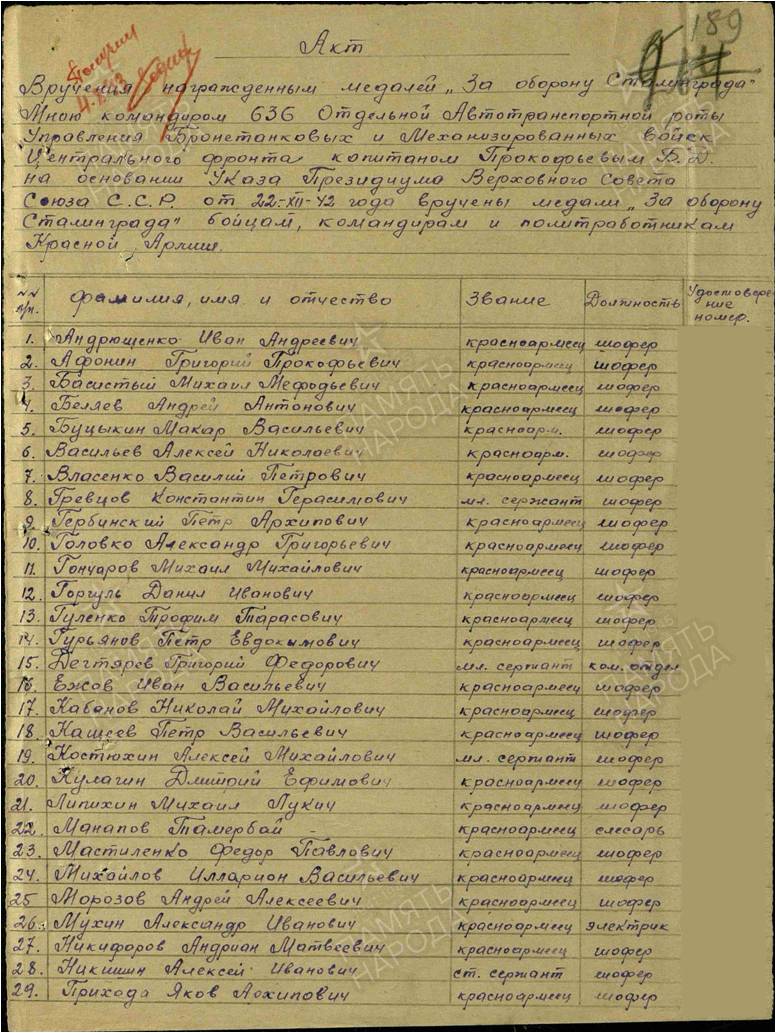 189
Акт
Вручения награжденным медалей „За оборону Сталинграда"
Мною командиром 636 Отдельной Автотранспортной роты
Управления Бронетанковых и Механизированных войск
Центрального фронта капитаном Прокофьевым Б.Д.
на основании Указа Президиума Верховного Совета
Союза С.С.Р. от 22-XII-42 года вручены медали „За оборону
Сталинграда" бойцам, командирам и политработникам
Красной Армии.
NN п/п. фамилия, имя и отчество Звание Должность Удостоверение номер.
1. Андрющенко Иван Андреевич красноармеец шофер
2. Афонин Григорий Прокофьевич красноармеец шофер
3. Басистый Михаил Мефодьевич красноармеец шофер
4. Беляев Андрей Антонович красноармеец шофер
5. Буцыкин Макар Васильевич красноарм. шофер
6. Васильев Алексей Николаевич красноарм. шофер
7. Власенко Василий Петрович красноармеец шофер
8. Гревцов Константин Герасимович мл. сержант шофер
9. Гербинский Петр Архипович красноармеец шофер
10. Головко Александр Григорьевич красноармеец шофер
11. Гончаров Михаил Михайлович красноармеец шофер
12. Горгуль Данил Иванович красноармеец шофер
13. Гуленко Трофим Тарасович красноармеец шофер
14. Гурьянов Петр Евдокымович красноармеец шофер
15. Дегтярев Григорий Федорович мл. сержант ком. отдел
16. Ежов Иван Васильевич красноармеец шофер
17. Кабанов Николай Михайлович красноармеец шофер
18. Кащеев Петр Васильевич красноармеец шофер
19. Костюхин Алексей Михайлович мл. сержант шофер
20. Кулагин Дмитрий Ефимович красноармеец шофер
21. Липихин Михаил Лукич красноармеец шофер
22. Манапов Тамербай - красноармеец слесарь
23. Мастиленко Федор Павлович красноармеец шофер
24. Михайлов Илларион Васильевич красноармеец шофер
25 Морозов Андрей Алексеевич красноармеец шофер
26. Мухин Александр Иванович красноармеец электрик
27. Никифоров Андриан Матвеевич красноармеец шофер
28. Никишин Алексей Иванович ст. сержант шофер
29. Прихода Яков Архипович красноармеец шофер
ПАМЯТЬ НАРОДА